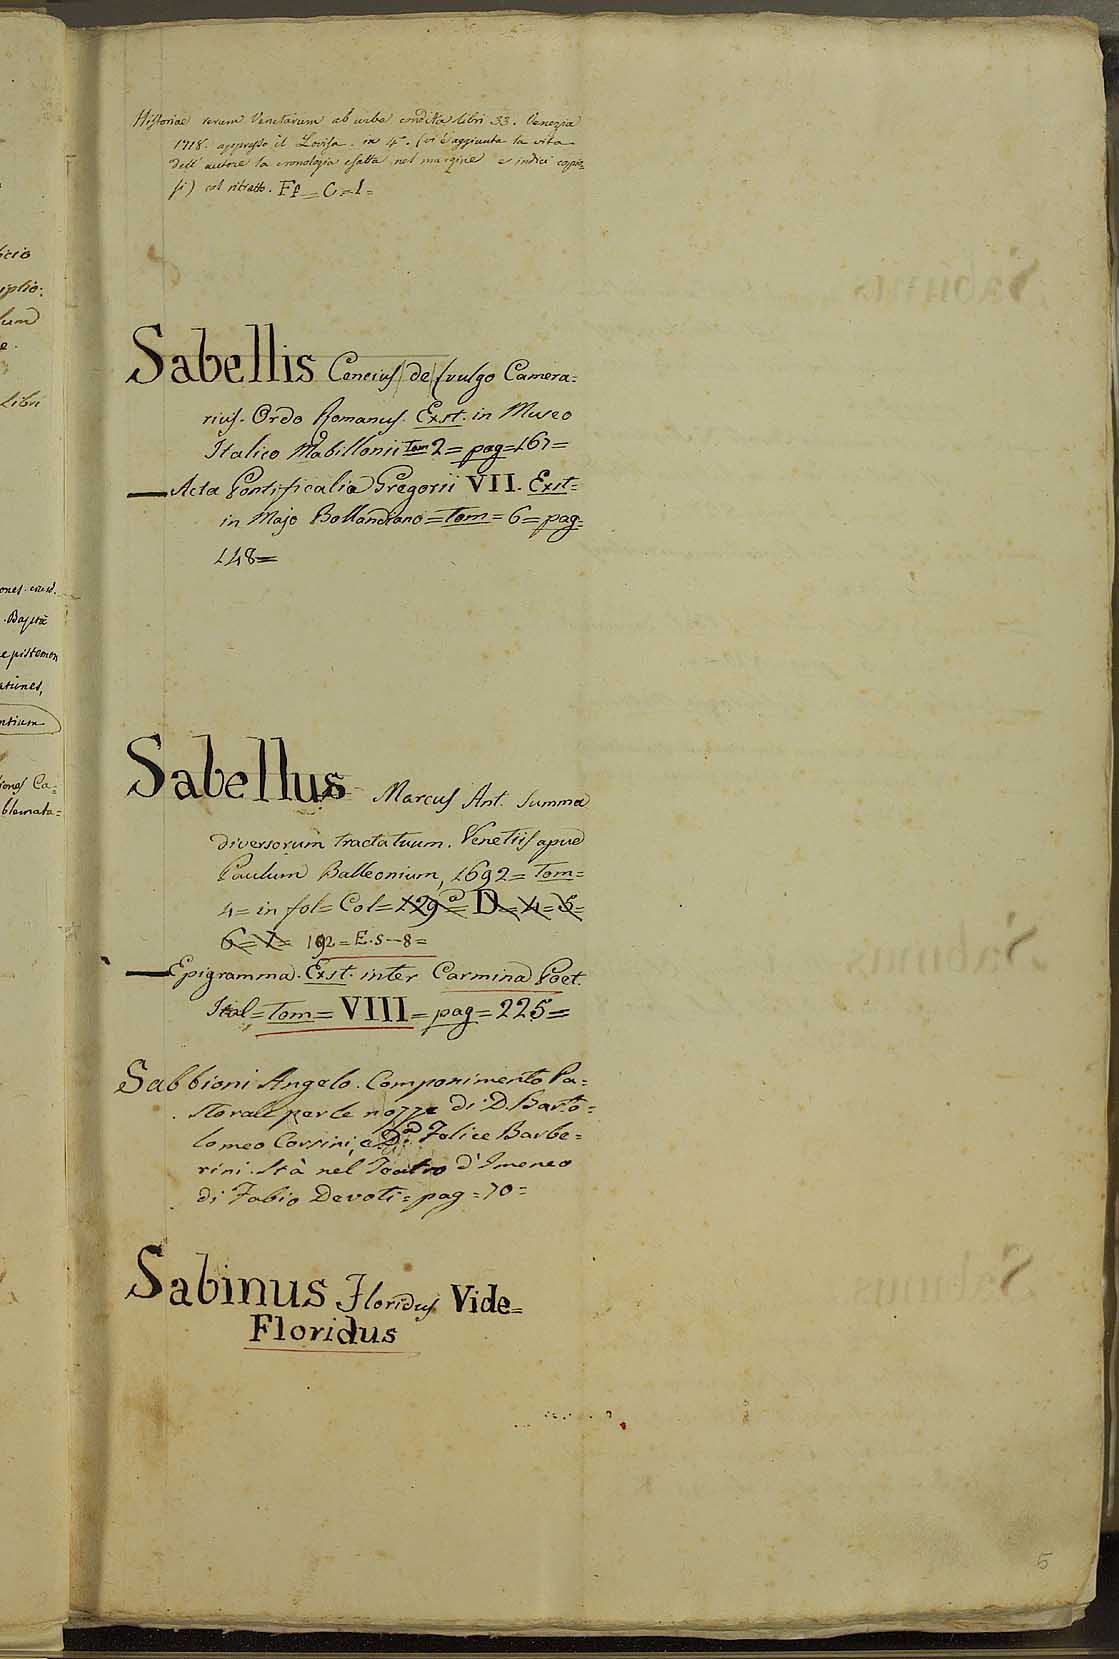 Historiae rerum Venetarum ab urbe condita libri 33. Venezia
1718. appresso il Lovisa. in 4°. (vi è aggiunta la vita
dell' autore la cronologia esatta nel margine e indici copio=
si) col ritratto. Ff = C = 1 =
Sabellis Cencius de (vulgo Camera=
rius. Ordo Romanus. Exst. in Museo
Italico Mabillonii Tom 2 = pag = 167 =
— Acta Pontificalia Gregorii VII. Exst=
in Majo Bollandiano = Tom = 6 = pag=
148 =
Sabellus Marcus Ant. Summa
diversorum tractatuum. Venetiis apud
Paulum Balleonium, 1692 = Tom =
4 = in fol = Col = 129 = D = 4 = 5 =
6 = 7 = 192 = E. 5 - 8 =
— Epigramma. Exst. inter Carmina Poet.
Ital = Tom = VIII = pag = 225 =
Sabbioni Angelo. Componimento Pa=
storale per le nozze di D. Barto=
lomeo Corsini, e D.ª Felice Barbe=
rini. Stà nel Teatro d'Imeneo
di Fabio Devoti = pag = 70 =
Sabinus Floridus Vide=
Floridus
5
icio
iplio:
lum
e.
Libri
ones. eiusd.
. Baptæ
epistemon
ationes,
ntium
iones Ca=
blemata=